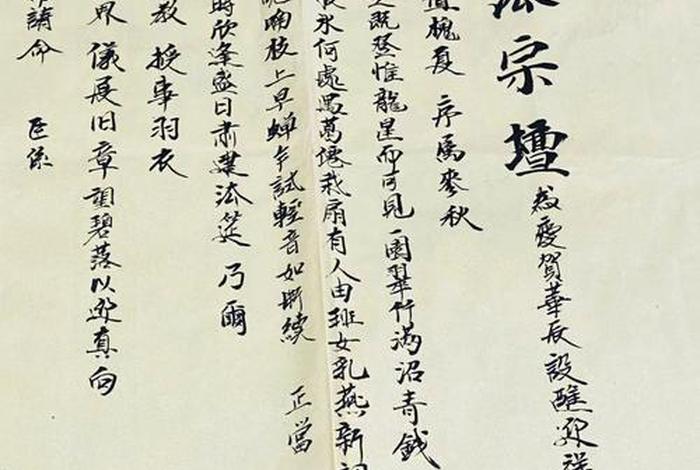 宗壇
為慶賀華辰設醮迎
槐夏 序馬麥秋
既登惟龍星而可見 園翠竹滿沼青錢
氷何處馮萬僊裁扇有人由班女乳燕新
喃枝上早蟬乍試輕音如斷續 正當
時欣逢盛日肅建法筵 乃爾
教 授事羽衣
界 儀展旧章詣碧落以迎真向
請命 臣係